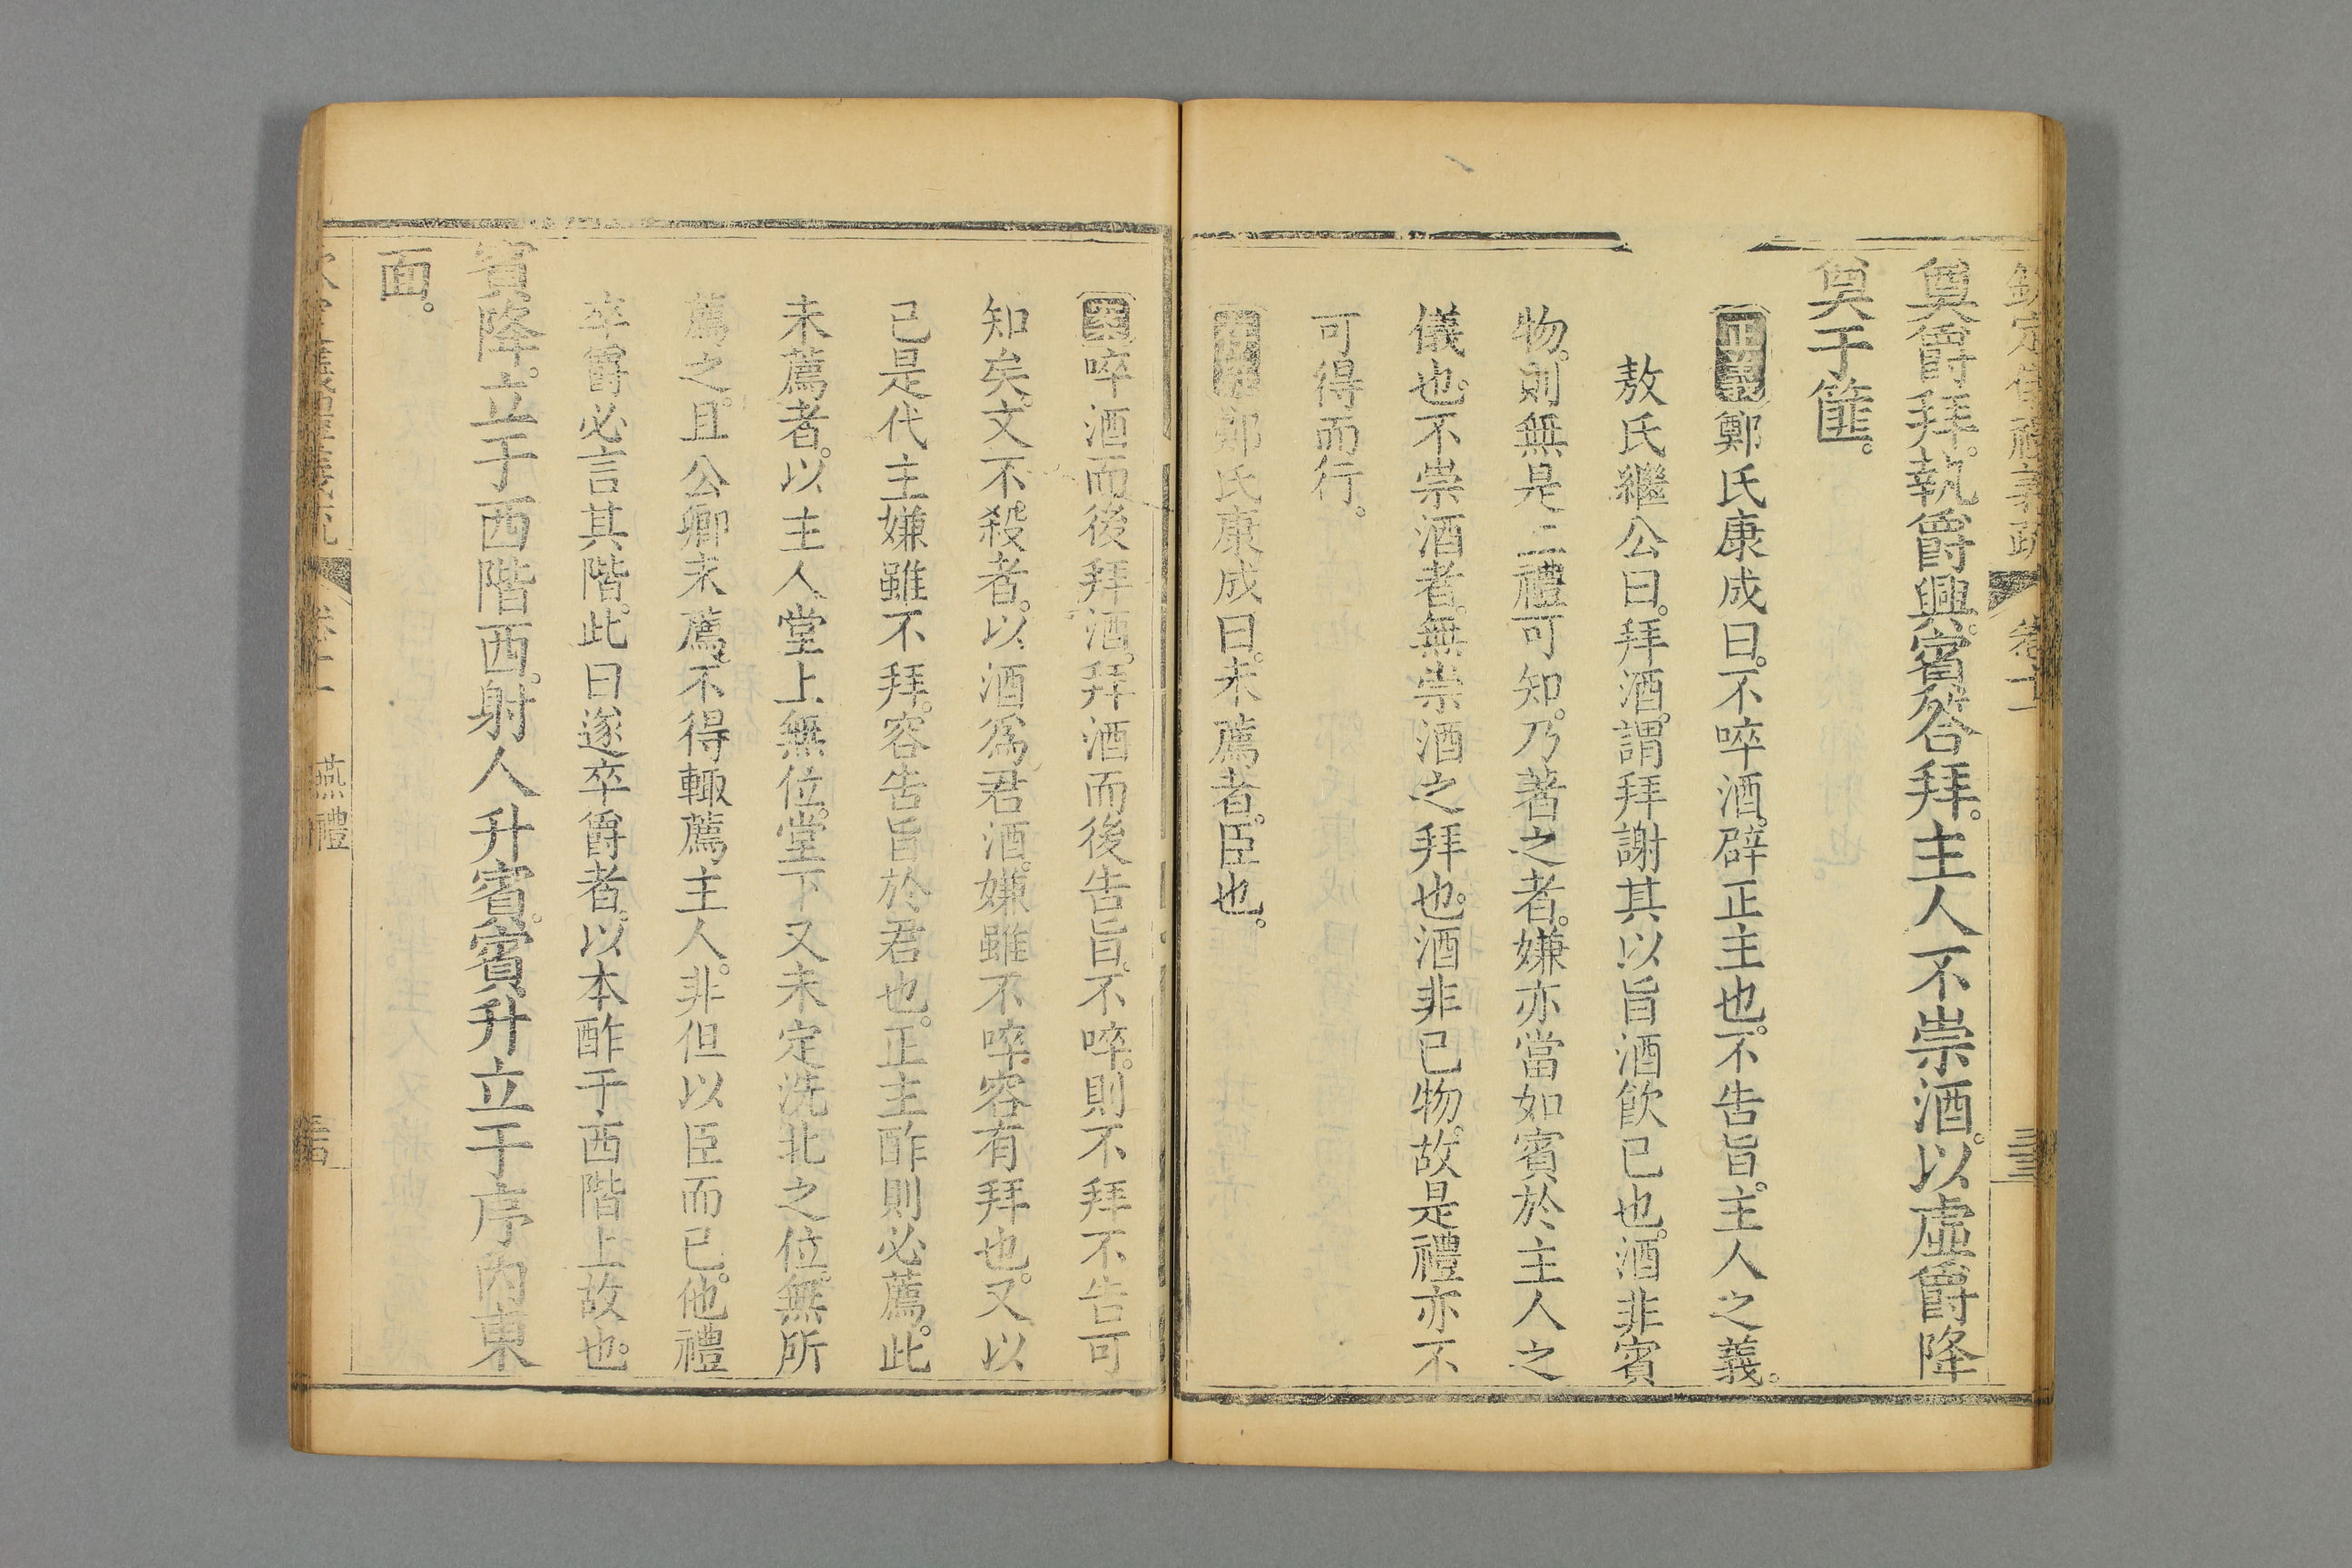 欽定儀禮義疏 卷十二
奠爵拜。執爵興。賓答拜。主人不崇酒。以虛爵降
奠于篚。
正義鄭氏康成曰。不啐酒。辟正主也。不告旨。主人之義。
敖氏繼公曰。拜酒。謂拜謝其以旨酒飲已也。酒非賓
物。則無是二禮可知。乃著之者。嫌亦當如賓於主人之
儀也。不崇酒者。無崇酒之拜也。酒非已物。故是禮亦不
可得而行。
鄭氏康成曰。未薦者。臣也。
啐酒而後拜酒。拜酒而後告旨。不啐。則不拜不告可
知矣。文不殺者。以酒為君酒。嫌雖不啐。容有拜也。又以
已是代主。嫌雖不拜。容告旨於君也。正主酢則必薦。此
未薦者。以主人堂上無位。堂下又未定洗北之位。無所
薦之。且公卿未薦。不得輒薦主人。非但以臣而已。他禮
卒爵必言其階。此曰遂卒爵者。以本酢于西階上故也。
賓降。立于西階西。射人升賓。賓升立于序內東
面。
卷十二 燕禮